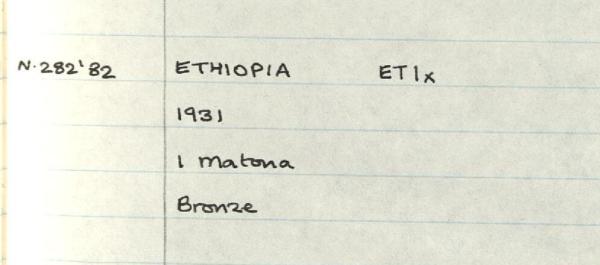 N.282'82 ETHIOPIA ET1x
1931
1 Matona
Bronze